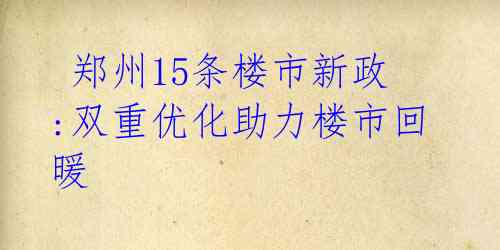 郑州15条楼市新政
:双重优化助力楼市回
暖